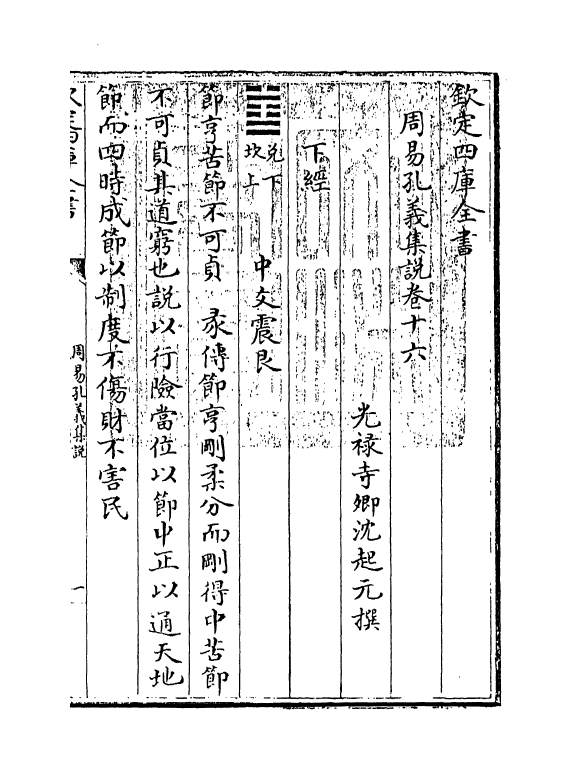 欽定四庫全書
周易孔義集説卷十六
光禄寺卿沈起元撰
下經
兌下
坎上
中爻震艮
節亨苦節不可貞 彖傳節亨剛柔分而剛得中苦節
不可貞其道窮也説以行險當位以節中正以通天地
節而四時成節以制度不傷財不害民
周易孔義集説
一